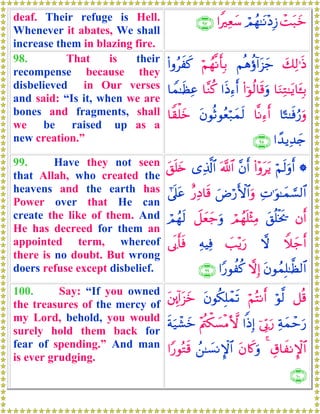 deaf. Their refuge is Hell.
Whenever it abates, We shall
increase them in blazing fire.
خَبَتْ زِدْنَٰهُمْ سَعِيرًا ﴿٩٧﴾
98. That is their
recompense because they
disbelieved in Our verses
and said: “Is it, when we are
bones and fragments, shall
we be raised up as a
new creation.”
ذَٰلِكَ جَزَآؤُهُم بِأَنَّهُمْ كَفَرُوا۟
بِـَٔايَٰتِنَا وَقَالُوٓا۟ أَءِذَا كُنَّا عِظَٰمًا
وَرُفَٰتًا أَءِنَّا لَمَبْعُوثُونَ خَلْقًا
جَدِيدًا ﴿٩٨﴾
99. Have they not seen
that Allah, who created the
heavens and the earth has
Power over that He can
create the like of them. And
He has decreed for them an
appointed term, whereof
there is no doubt. But wrong
doers refuse except disbelief.
۞ أَوَلَمْ يَرَوْا۟ أَنَّ ٱللَّهَ ٱلَّذِى خَلَقَ
ٱلسَّمَٰوَٰتِ وَٱلْأَرْضَ قَادِرٌ عَلَىٰٓ
أَن يَخْلُقَ مِثْلَهُمْ وَجَعَلَ لَهُمْ
أَجَلًا لَّا رَيْبَ فِيهِ فَأَبَى
ٱلظَّٰلِمُونَ إِلَّا كُفُورًا ﴿٩٩﴾
100. Say: “If you owned
the treasures of the mercy of
my Lord, behold, you would
surely hold them back for
fear of spending.” And man
is ever grudging.
قُل لَّوْ أَنتُمْ تَمْلِكُونَ خَزَآئِنَ
رَحْمَةِ رَبِّىٓ إِذًا لَّأَمْسَكْتُمْ خَشْيَةَ
ٱلْإِنفَاقِ ۚ وَكَانَ ٱلْإِنسَٰنُ قَتُورًا
﴿١٠٠﴾